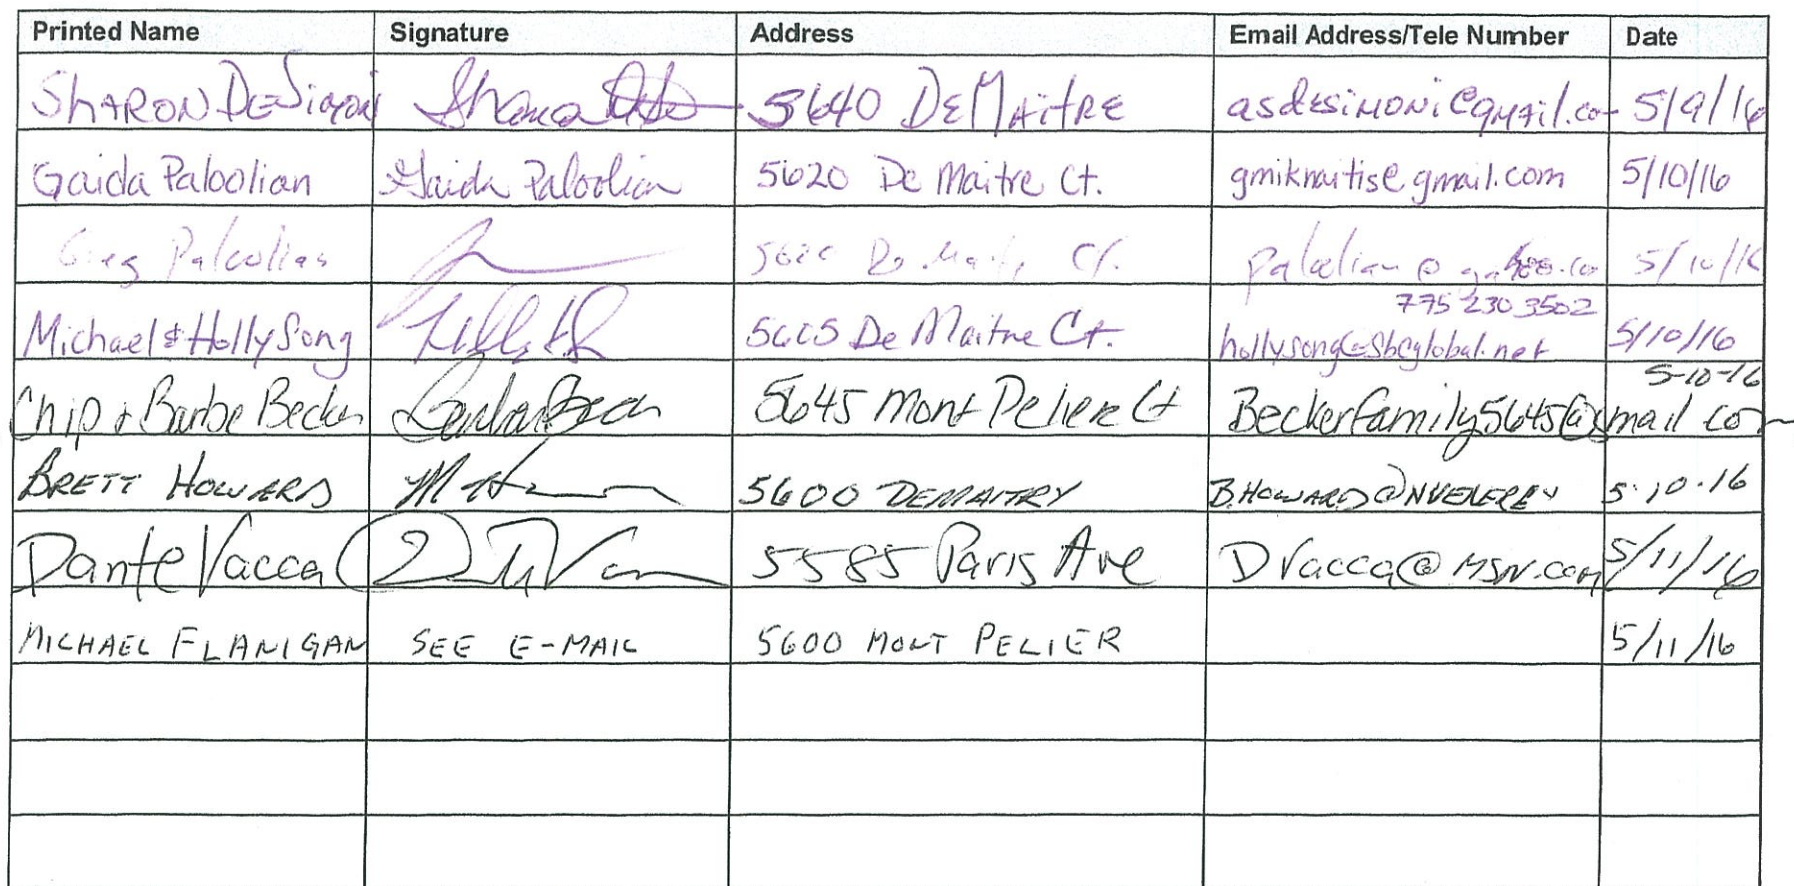 Printed Name Signature Address Email Address/Tele Number Date
SHARON DESimoni 5640 DEMAitRE asdesimoni@gmail.co 5/9/16
Gaida Paloolian Gaida Paloolian 5620 De Maitre Ct. gmiknaitis@gmail.com 5/10/16
Greg 5620 De Ct. 5/10/16
775 230 3502
Michael & Holly Song 5605 De Maitre Ct. hollysong@sbcglobal.net 5/10/16
5-10-16
Chip & Barbe Becker 5645 Mont Pelier Ct Beckerfamily5645@gmail com
BRETT HOWARD 5600 DEMAITRY B.HOWARD@NVENERGY 5.10.16
Dante Vacca 5585 Paris Ave DVacca@MSN.COM 5/11/16
MICHAEL FLANIGAN SEE E-MAIL 5600 MONT PELIER 5/11/16